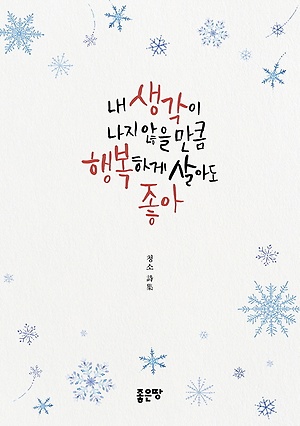 내 생각이
나지 않을 만큼
행복하게 살아도
좋아
청소 詩集
좋은땅